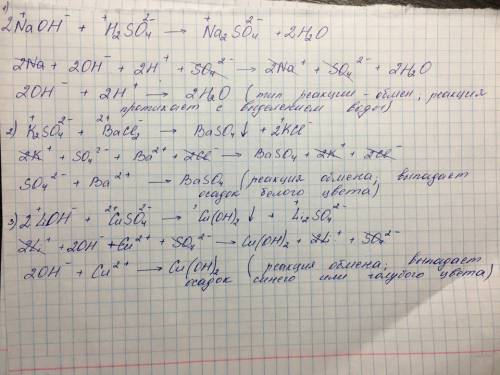 1)
2NaOH⁻ + H₂SO₄²⁻ → Na₂SO₄²⁻ + 2H₂O
2Na⁺ + 2OH⁻ + 2H⁺ + SO₄²⁻ → 2Na⁺ + SO₄²⁻ + 2H₂O
2OH⁻ + 2H⁺ → 2H₂O (тип реакции - обмен, реакция
протикает с выделением воды)
2) K₂⁺SO₄²⁻ + Ba²⁺Cl₂⁻ → BaSO₄↓ + 2K⁺Cl⁻
2K⁺ + SO₄²⁻ + Ba²⁺ + 2Cl⁻ → BaSO₄ + 2K⁺ + 2Cl⁻
SO₄²⁻ + Ba²⁺ → BaSO₄ (реакция обмена; выпадает
осадок белого цвета)
3) 2Li⁺OH⁻ + Cu²⁺SO₄²⁻ → Cu(OH)₂↓ + Li₂⁺SO₄²⁻
2Li⁺ + 2OH⁻ + Cu²⁺ + SO₄²⁻ → Cu(OH)₂ + 2Li⁺ + SO₄²⁻
2OH⁻ + Cu²⁺ → Cu(OH)₂ (реакция обмена; выпадает
осадок синего или голубого цвета)